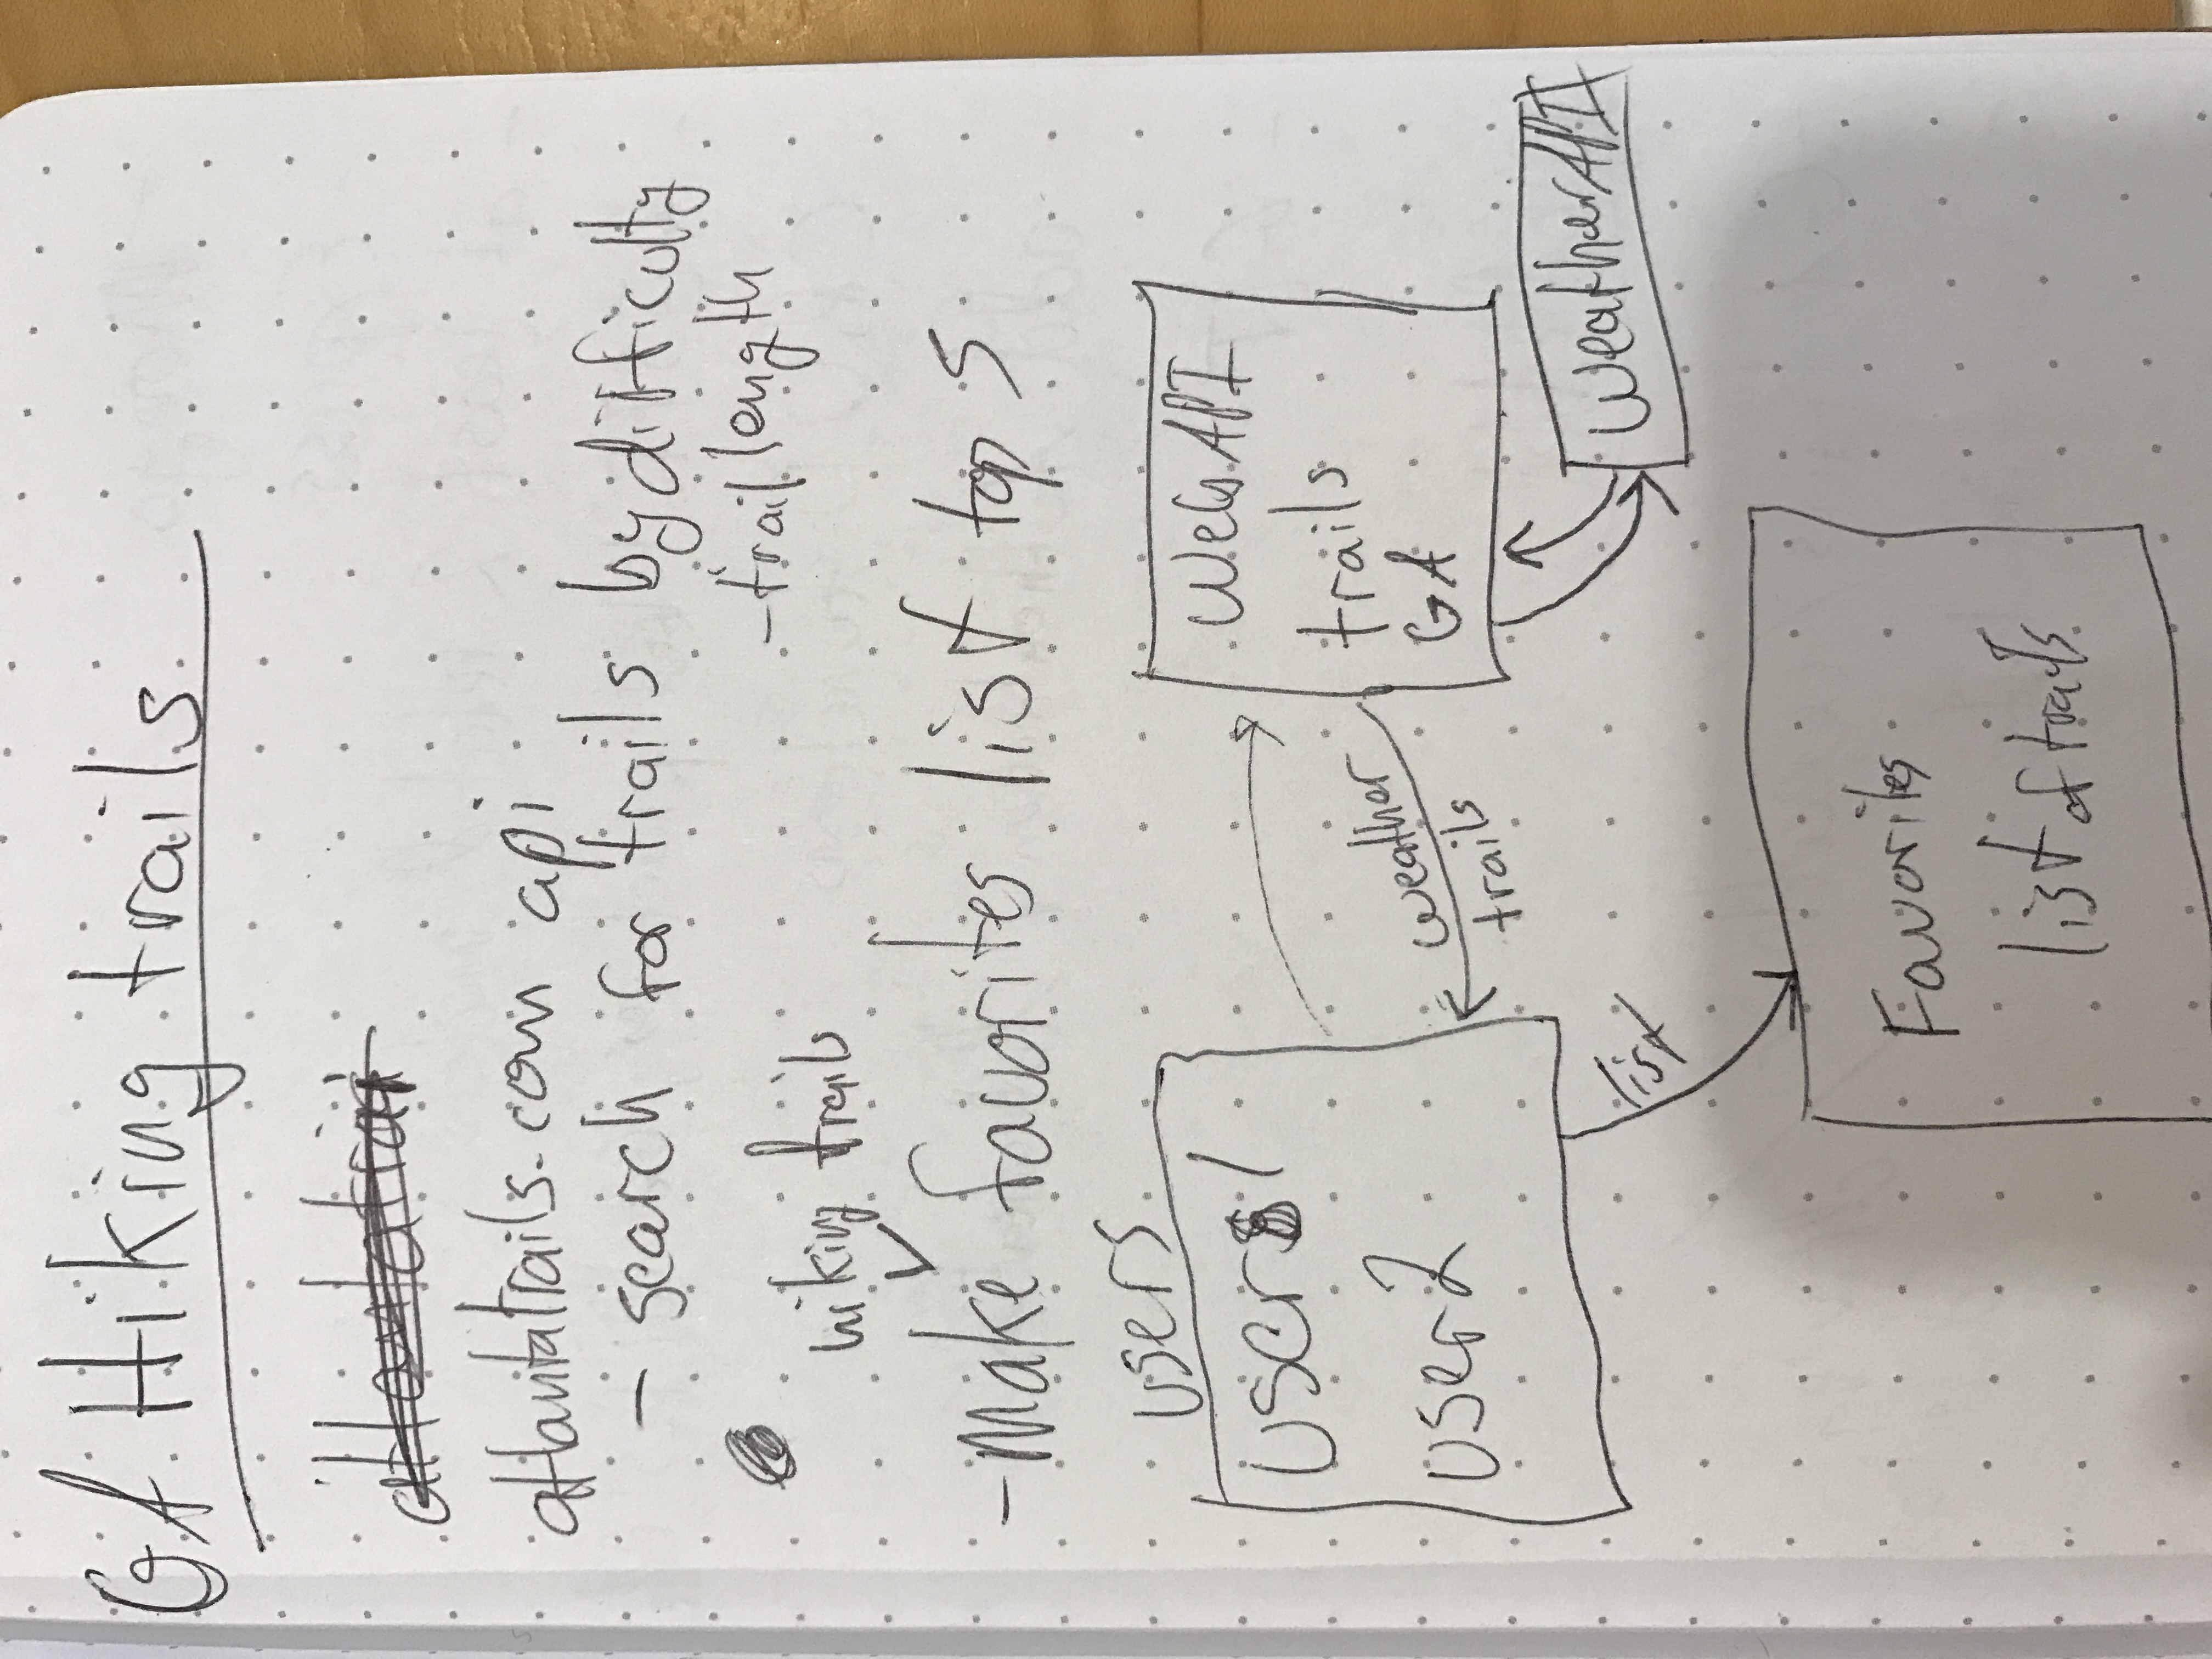 GA Hiking trails
atlantatrai
atlantatrails.com api
- search for trails by difficulty
- trail length
hiking trails
- Make favorites list top 5
users
user 1
user 2
Web API
trails
GA
weather
trails
Weather API
list
Favorites
list of trails